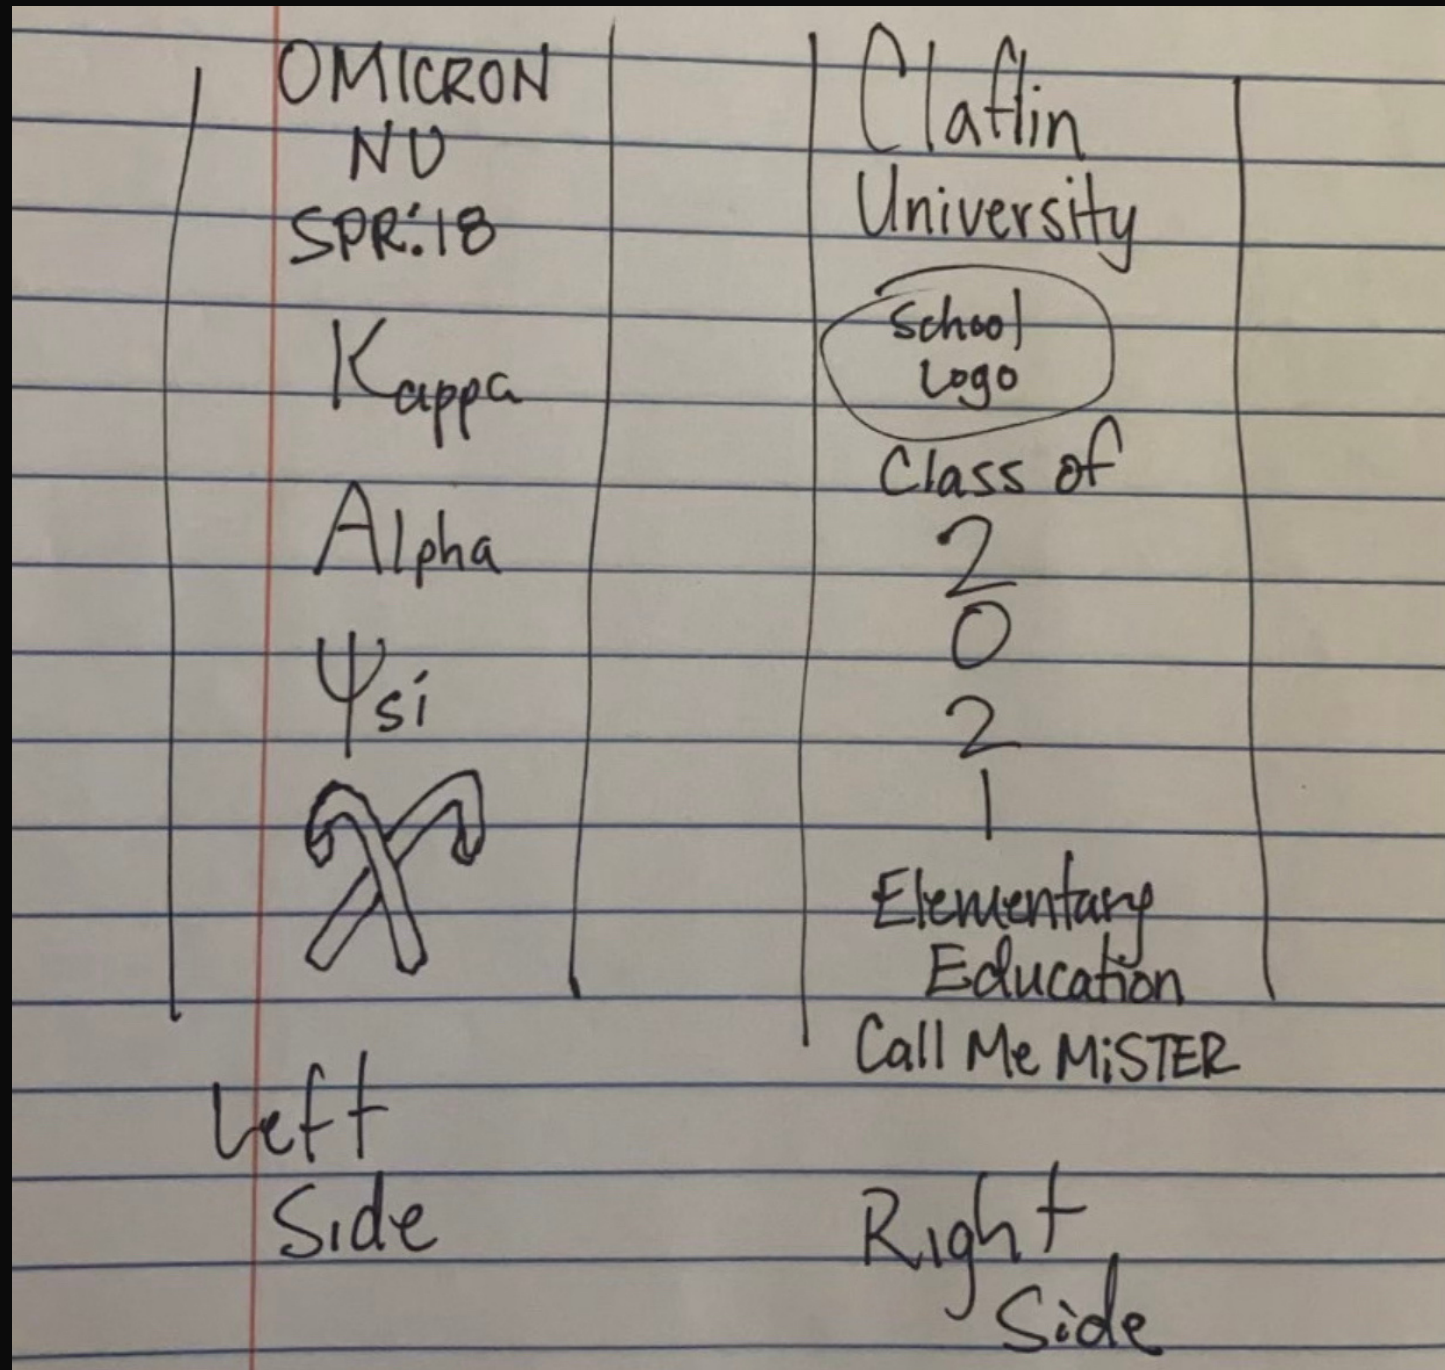 OMICRON
NU
SPR:18
Kappa
Alpha
Ψsi
Left
Side
Claflin
University
School
Logo
Class of
2
0
2
1
Elementary
Education
Call Me MiSTER
Right
Side